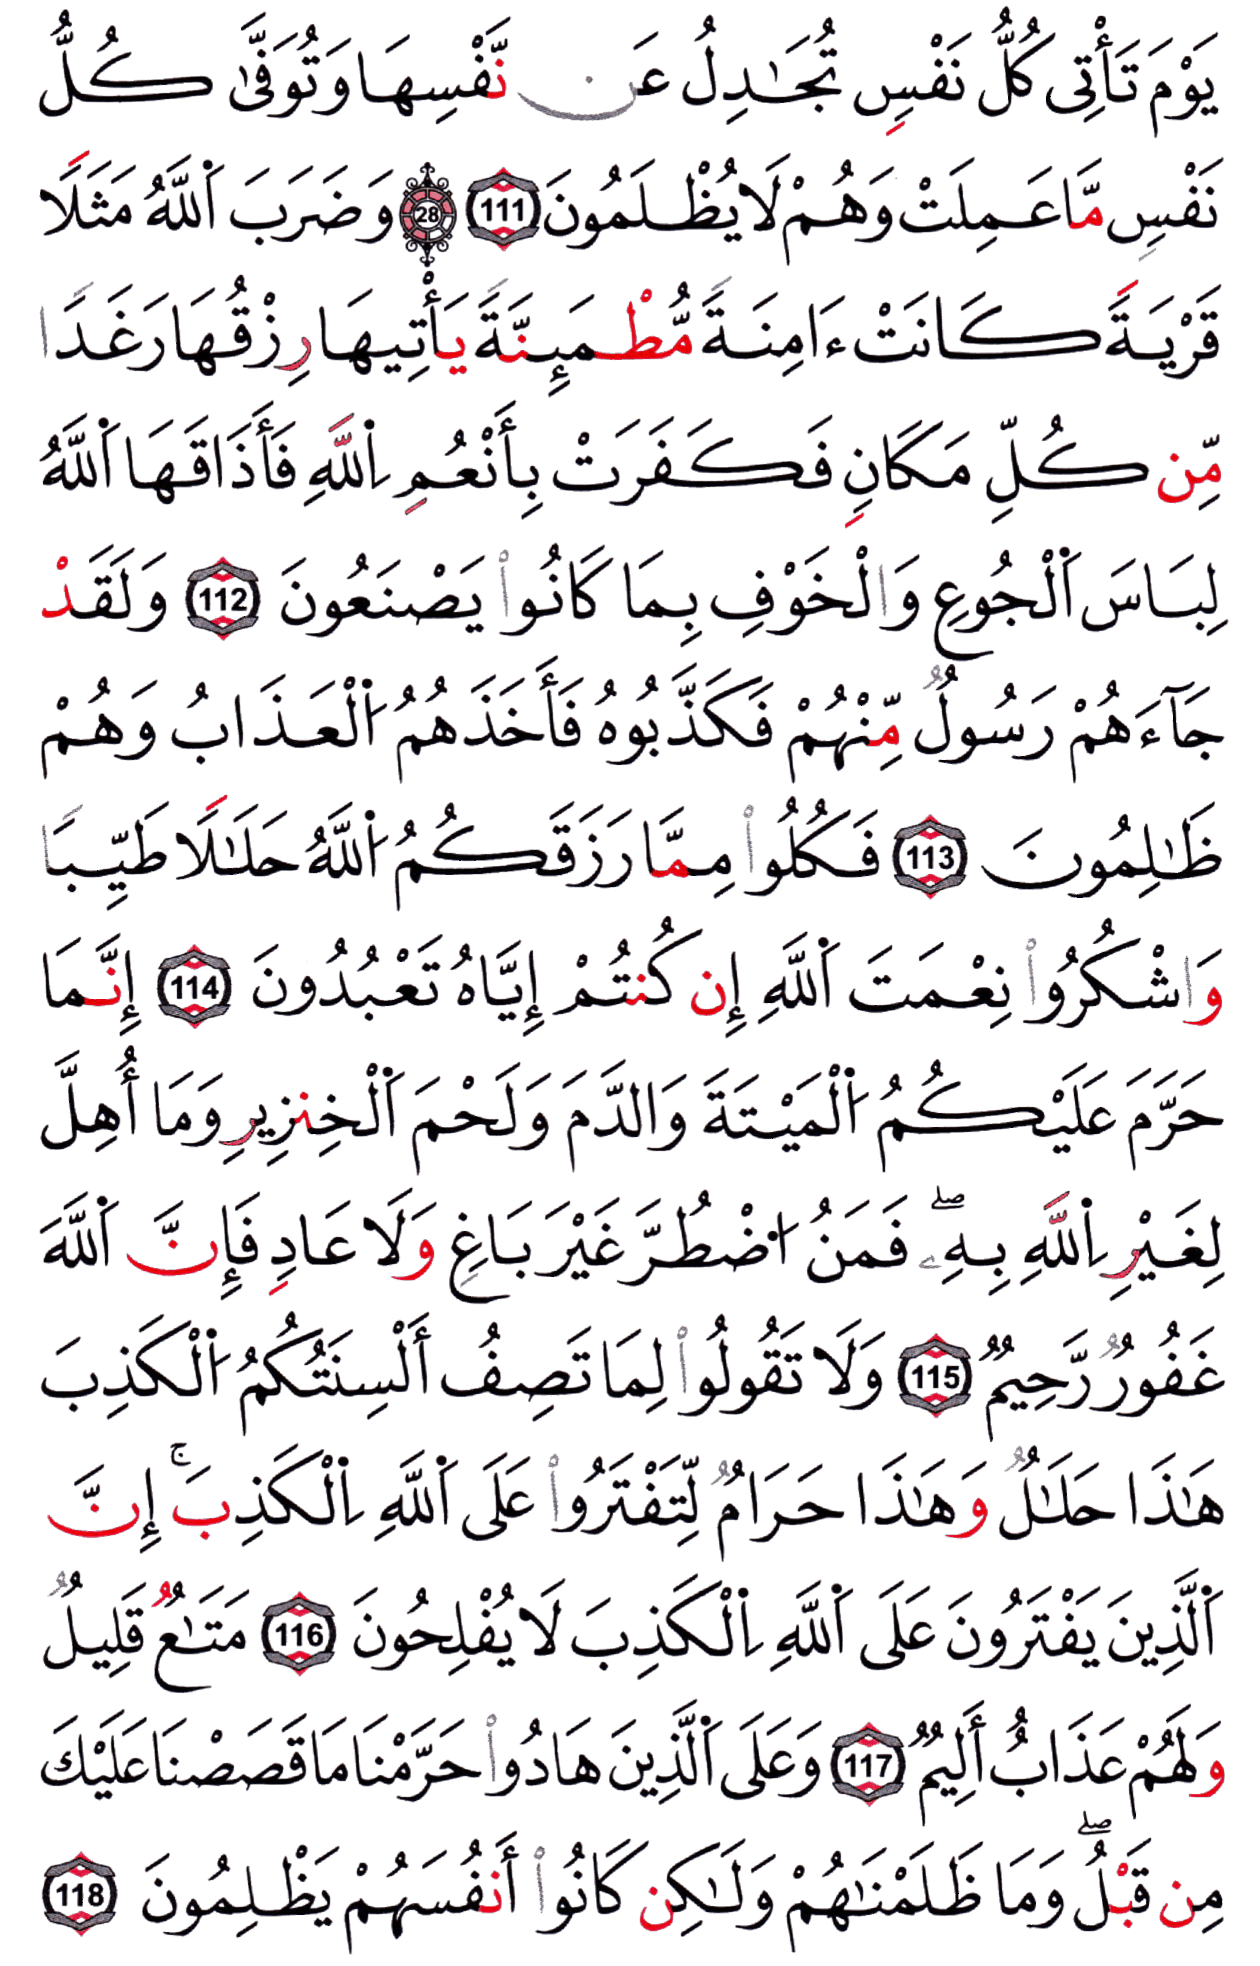 يَوْمَ تَأْتِى كُلُّ نَفْسٍ تُجَٰدِلُ عَن نَّفْسِهَا وَتُوَفَّىٰ كُلُّ
نَفْسٍ مَّا عَمِلَتْ وَهُمْ لَا يُظْلَمُونَ 111 28 وَضَرَبَ اَ۬للَّهُ مَثَلًا
قَرْيَةً كَانَتْ ءَامِنَةً مُّطْمَئِنَّةً يَأْتِيهَا رِزْقُهَا رَغَدًا
مِّن كُلِّ مَكَانٍ فَكَفَرَتْ بِأَنْعُمِ اِ۬للَّهِ فَأَذَاقَهَا اَ۬للَّهُ
لِبَاسَ اَ۬لْجُوعِ وَالْخَوْفِ بِمَا كَانُواْ يَصْنَعُونَ 112 وَلَقَدْ
جَآءَهُمْ رَسُولٌ مِّنْهُمْ فَكَذَّبُوهُ فَأَخَذَهُمُ اُ۬لْعَذَابُ وَهُمْ
ظَٰلِمُونَ 113 فَكُلُواْ مِمَّا رَزَقَكُمُ اُ۬للَّهُ حَلَٰلًا طَيِّبًا
وَاشْكُرُواْ نِعْمَتَ اَ۬للَّهِ إِن كُنتُمْ إِيَّاهُ تَعْبُدُونَ 114 إِنَّمَا
حَرَّمَ عَلَيْكُمُ اُ۬لْمَيْتَةَ وَالدَّمَ وَلَحْمَ اَ۬لْخِنزِيرِ وَمَا أُهِلَّ
لِغَيْرِ اِ۬للَّهِ بِهِۦۖ فَمَنُ اُ۟ضْطُرَّ غَيْرَ بَاغٍ وَلَا عَادٍ فَإِنَّ اَ۬للَّهَ
غَفُورٌ رَّحِيمٌ 115 وَلَا تَقُولُواْ لِمَا تَصِفُ أَلْسِنَتُكُمُ اُ۬لْكَذِبَ
هَٰذَا حَلَٰلٌ وَهَٰذَا حَرَامٌ لِّتَفْتَرُواْ عَلَى اَ۬للَّهِ اِ۬لْكَذِبَۚ إِنَّ
اَ۬لَّذِينَ يَفْتَرُونَ عَلَى اَ۬للَّهِ اِ۬لْكَذِبَ لَا يُفْلِحُونَ 116 مَتَٰعٌ قَلِيلٌ
وَلَهُمْ عَذَابٌ أَلِيمٌ 117 وَعَلَى اَ۬لَّذِينَ هَادُواْ حَرَّمْنَا مَا قَصَصْنَا عَلَيْكَ
مِن قَبْلُۖ وَمَا ظَلَمْنَٰهُمْ وَلَٰكِن كَانُواْ أَنفُسَهُمْ يَظْلِمُونَ 118